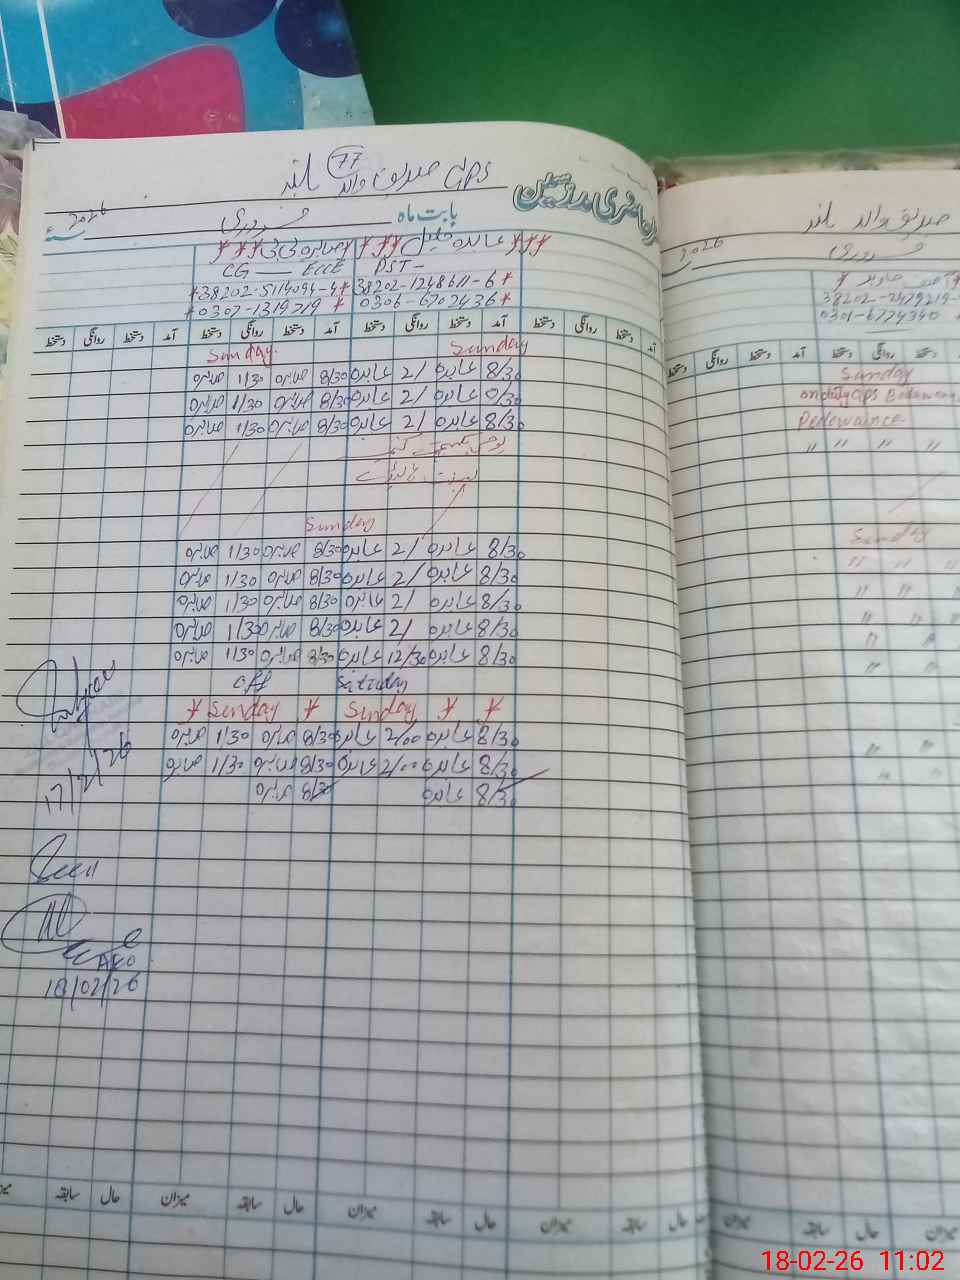 77
صدیق والہ بلند GPS
حاضری مدرسین
بابت ماہ فروری 2026
*** عابدہ خلیل *** صابرہ بی بی ***
PST - CG — ECCE
38202-1248611-6 * *38202-5114094-4*
0306-6702436 * *0307-1319719 *
آمد دستخط روانگی دستخط آمد دستخط روانگی دستخط آمد دستخط روانگی دستخط
Sunday Sunday
8/30 عابدہ 2/ عابدہ 8/30 صابرہ 1/30 صابرہ
8/30 عابدہ 2/ عابدہ 8/30 صابرہ 1/30 صابرہ
8/30 عابدہ 2/ عابدہ 8/30 صابرہ 1/30 صابرہ
Sunday
8/30 عابدہ 2/ عابدہ 8/30 صابرہ 1/30 صابرہ
8/30 عابدہ 2/ عابدہ 8/30 صابرہ 1/30 صابرہ
8/30 عابدہ 2/ عابدہ 8/30 صابرہ 1/30 صابرہ
8/30 عابدہ 2/ عابدہ 8/30 صابرہ 1/30 صابرہ
8/30 عابدہ 12/30 عابدہ 8/30 صابرہ 1/30 صابرہ
off Saturday
* Sunday * Sunday * *
8/30 عابدہ 2/00 عابدہ 8/30 صابرہ 1/30 صابرہ
8/30 عابدہ 2/00 عابدہ 8/30 صابرہ 1/30 صابرہ
8/30 عابدہ 8/30 صابرہ
17/2/26
Seen
AEO
18/02/26
میزان سابقہ حال میزان سابقہ حال میزان سابقہ حال میزان سابقہ حال
صدیق والہ بلند
فروری 2026
38202-2479219-
0301-6724340
دستخط روانگی دستخط آمد دستخط روانگی دستخط
Sunday
on duty GPS
" " " "
Sunday
" " "
" "
" "
"
" "
" "
" "
میزان سابقہ حال میزان
18-02-26 11:02